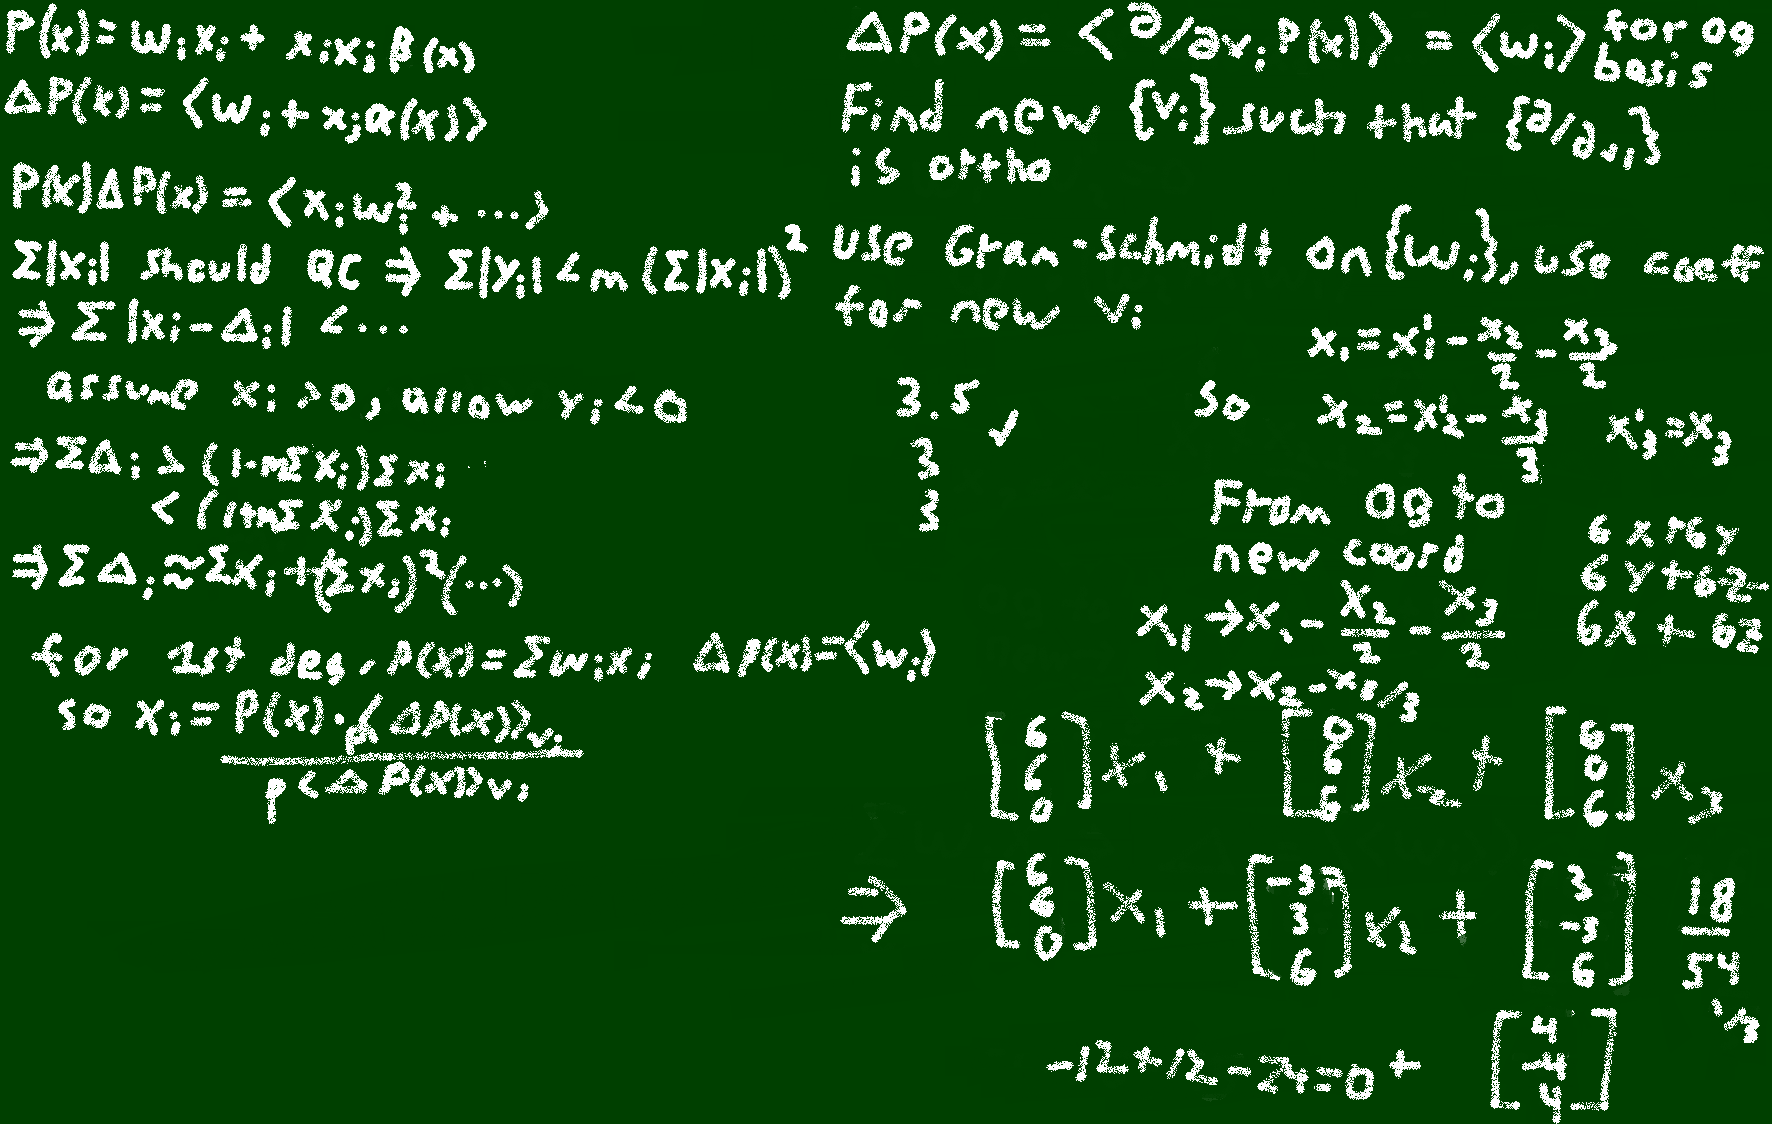 P(x)=w_i x_i + x_i x_j β(x)
ΔP(x)=⟨w_i + x_j α(x)⟩
P(x)ΔP(x)=⟨x_i w_i² + ...⟩
Σ|x_i| should QC ⇒ Σ|y_i| < m(Σ|x_i|)²
⇒ Σ|x_i-Δ_i| <...
assume x_i >0, allow y_i <0
⇒ΣΔ_i > (1-mΣx_i)Σx_i
< (1+mΣx_i)Σx_i
⇒ΣΔ_i ≈ Σx_i +(Σx_i)²(...)
for 1st deg, P(x)=Σw_i x_i ΔP(x)=⟨w_i⟩
so x_i = P(x)·p⟨ΔP(x)⟩v_i
p⟨ΔP(x)⟩v_i
ΔP(x) = ⟨∂/∂v_i P(x)⟩ = ⟨w_i⟩ for og
basis
Find new {v_i} such that {∂/∂v_i}
is ortho
Use Gram-Schmidt on {w_i}, use coeff
for new v_i
x_1=x'_1 - x_2/2 - x_3/2
so x_2=x'_2 - x_3/3 x'_3=x_3
3.5 ✓
3
3
From OG to
new coord
x_1→x_1 - x_2/2 - x_3/2
x_2→x_2-x_3/3
6x+6y
6y+6z
6x+6z
[6 6 0] x_1 + [0 6 6] x_2 + [6 0 6] x_3
⇒ [6 6 0] x_1 + [-3 3 6] x_2 + [3 -3 6] 18/54
1/3
-12+12-24=0 + [4 -4 4]